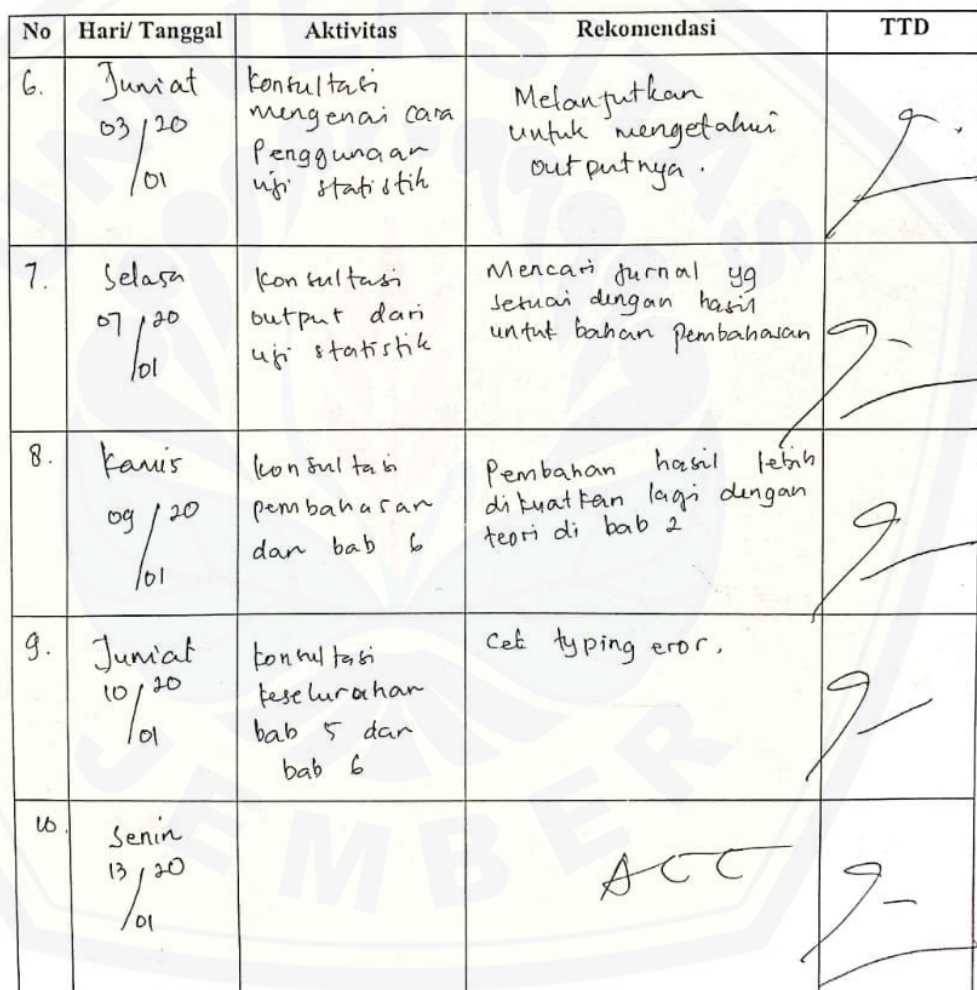 No Hari/ Tanggal Aktivitas Rekomendasi TTD
6.
Jum'at
03/20
/01
konsultasi
mengenai cara
Penggunaan
uji statistik
Melanjutkan
untuk mengetahui
outputnya.
7.
Selasa
07/20
/01
konsultasi
output dari
uji statistik
Mencari jurnal yg
sesuai dengan hasil
untuk bahan pembahasan
8.
Kamis
09/20
/01
konsultasi
pembahasan
dan bab 6
Pembahan hasil lebih
dikuatkan lagi dengan
teori di bab 2
9.
Jum'at
10/20
/01
konsultasi
keselurahan
bab 5 dan
bab 6
Cek typing eror.
10.
Senin
13/20
/01
ACC
UNIVERSITAS
JEMBER